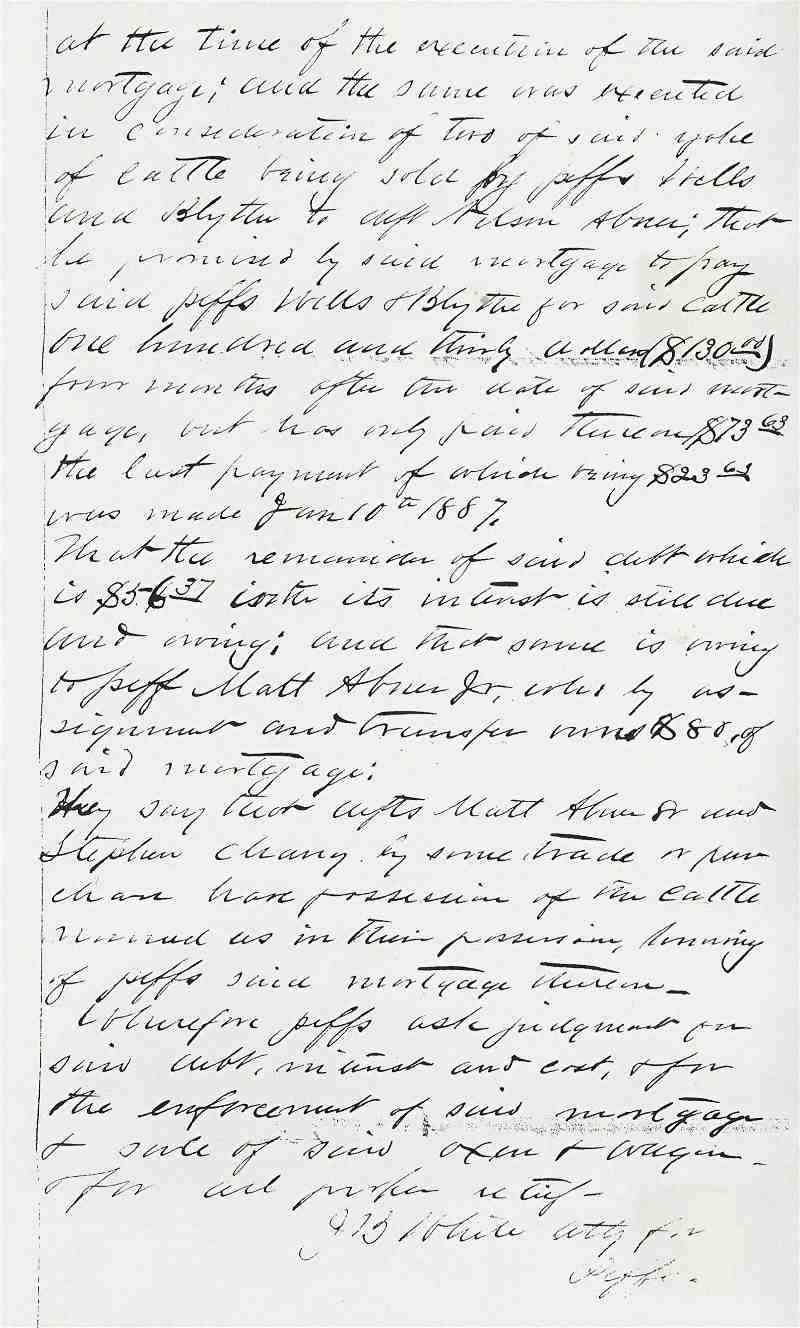 at the time of the execution of the said
mortgage; and the same was executed
in consideration of two of said yoke
of cattle being sold by peffs Wells
and Blythe to deft Nelson Abner; that
he promised by said mortgage to pay
said peffs Wells & Blythe for said cattle
One hundred and thirty dollars ($130.00)
four months after the date of said mort-
gage, but has only paid thereon $73 63
the last payment of which being $23 63
was made Jan 10th 1887.
That the remainder of said debt which
is $56 37 with its interest is still due
and owing; and that same is owing
to peff Matt Abner Jr, who by as-
signment and transfer owns $80, of
said mortgage;
They say that defts Matt Abner Sr and
Stephen by some trade or pur
chase have possession of the cattle
named as in their possession, knowing
of peffs said mortgage thereon_
Wherefore peffs ask judgment for
said debt, interest and cost, & for
the enforcement of said mortgage
& sale of said oxen & wagon_
& for all proper relief_
J B White atty for
Peffs.